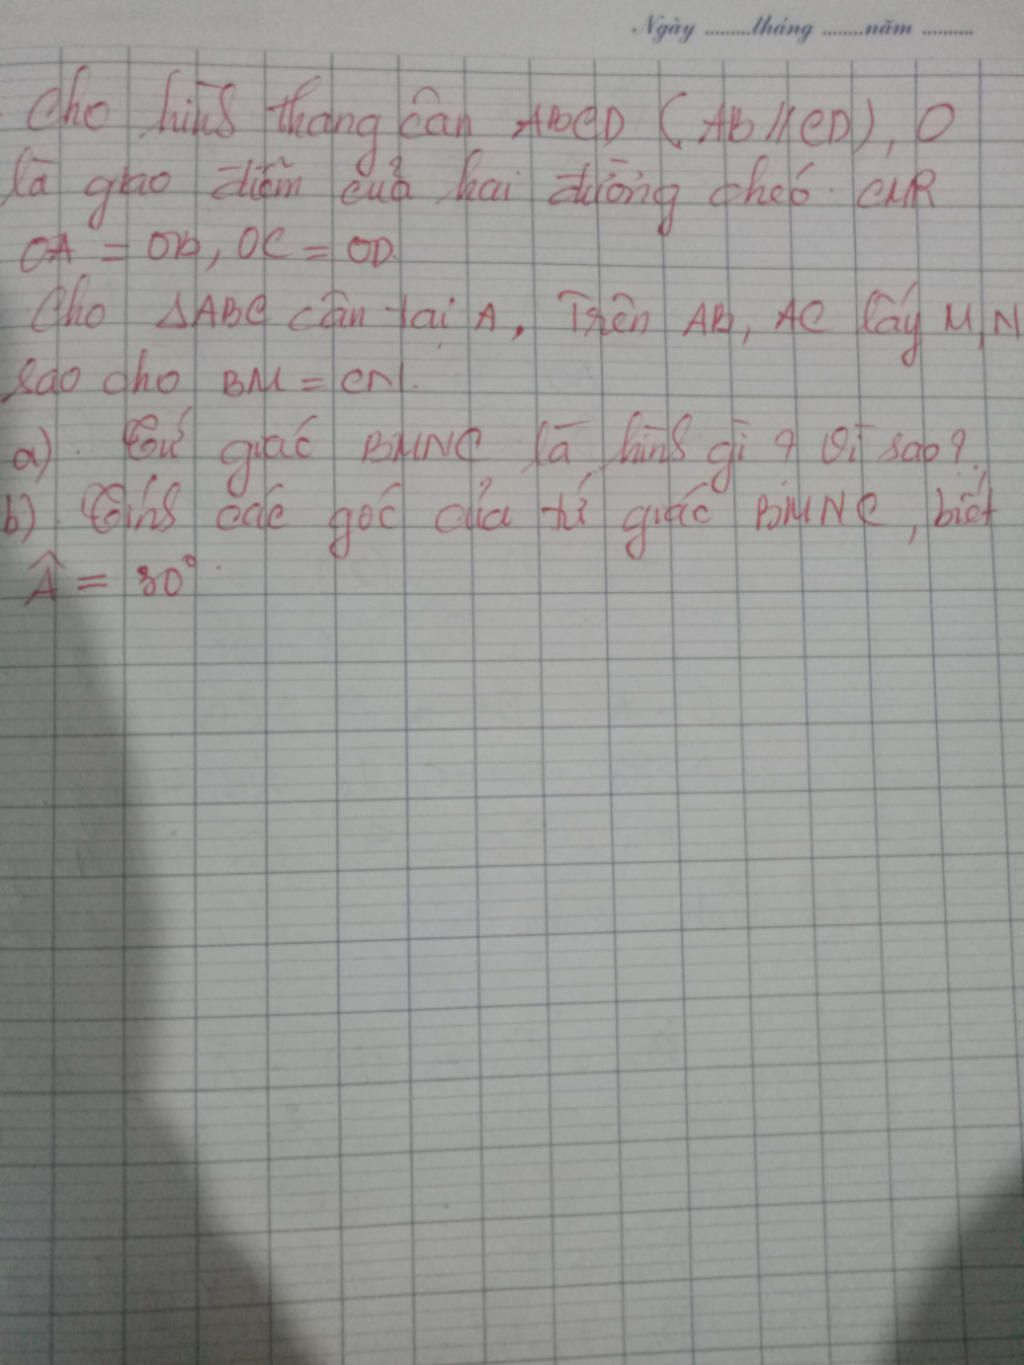 Ngày .........tháng ........năm ..........
Cho hình thang cân ABCD (AB // CD), O
là giao điểm của hai đường chéo. CMR
OA = OB, OC = OD.
Cho △ABC cân tại A, Trên AB, AC lấy M, N
sao cho BM = CN.
a). Tứ giác BMNC là hình gì? Vì sao?
b). Tính các góc của tứ giác BMNC, biết
Â = 30°